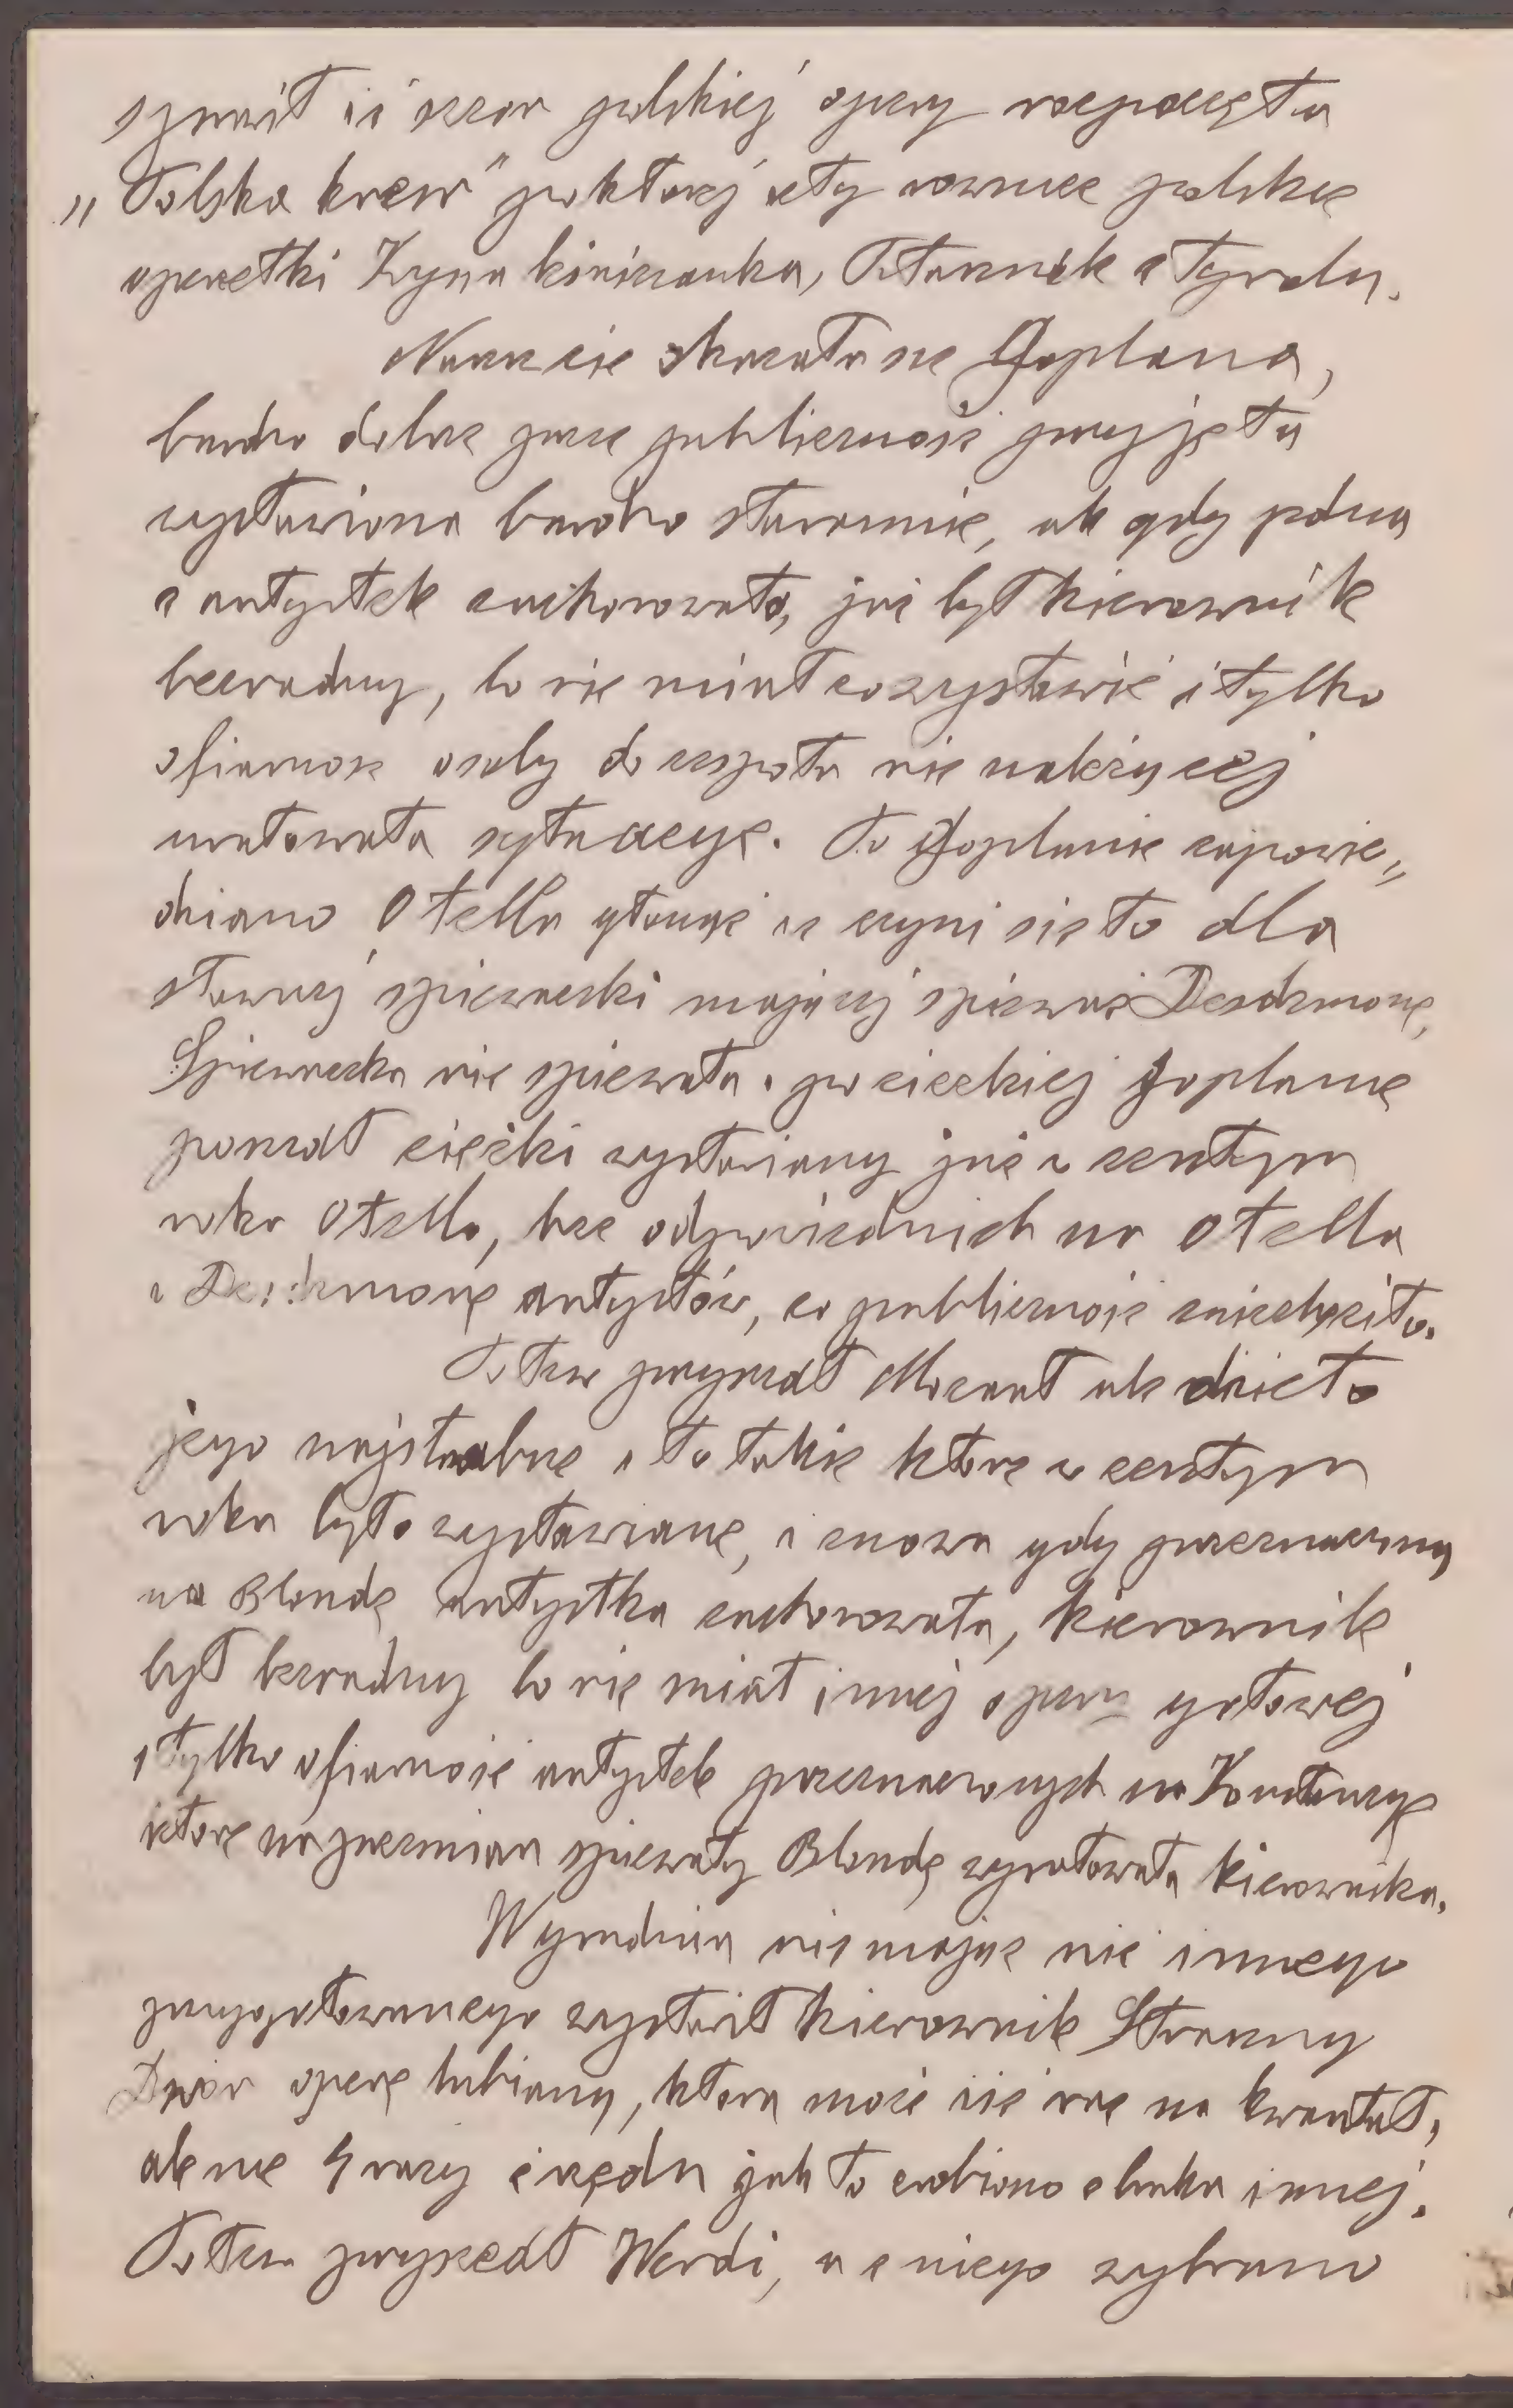 sprawił iż sezon polskiej opery rozpoczęła
„Polska krew" po której szły rownież polskie
operetki Zyna kiniczanka, Ptasznik z Tyrolu.
Nareszcie okazała sie Goplana,
bardzo dobrze przez publicznosć przyjęta
wystawiona bardzo starannie, ale gdy jedna
z artystek zachorowała, już był kierownik
bezradny, bo nie miał co wystawić i tylko
ofiarnosc osoby do zespołu nie należącej
uratowała sytuacyę. Po Goplanie zapowie„
dziano Otella głosząc iż czyni się to dla
sławnej spiewaczki mającej spiewać Desdemonę,
Spiewaczka nie spiewała. po cieżkiej Goplanie
poszedł ciężki wystawiany już w zeszłym
roku Otello, bez odpowiednich na Otella
i Desdemonę artystów, co publicznosć zniechęciło.
Potem przyszedł Mozart ale dzieło
jego najsłabsze i to takie które w zeszłym
roku było wystawiane, i znowu gdy przeznaczona
na Blondę artystka zachorowała, kierownik
był bezradny bo nie miał innej opery gotowej
i tylko ofiarność artystek przeznaczonych na Konstancyę
które na przemian spiewały Blondę wyratowała kierownika.
W grudniu nie mając nic innego
przygotowanego wystawił kierownik Straszny
Dwór operę lubianą, która może iść raz na kwartał,
ale nie 4 razy z rzędu jak to zrobiono z braku innej.
Potem przyszedł Werdi, a z niego wybrano